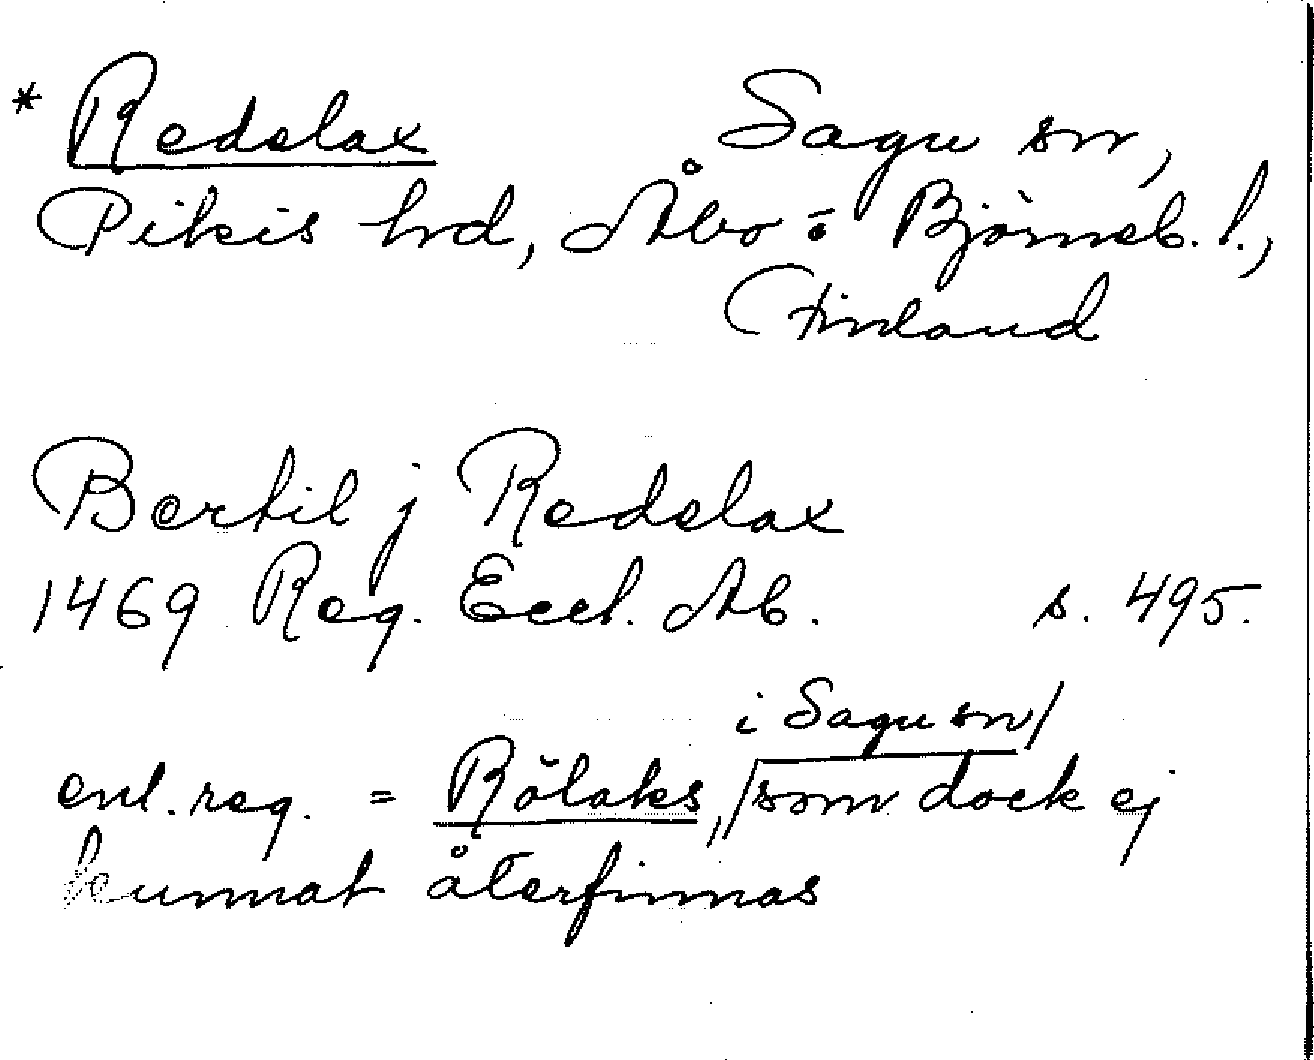 * Redelax Sagu sn,
Pikis hd, Åbo = Björneb. l.,
Finland
Bertil j Redelax
1469 Reg. Eccl. Ab. s. 495.
i Sagu sn/
enl. reg. = Rölaks, /som dock ej
kunnat återfinnas